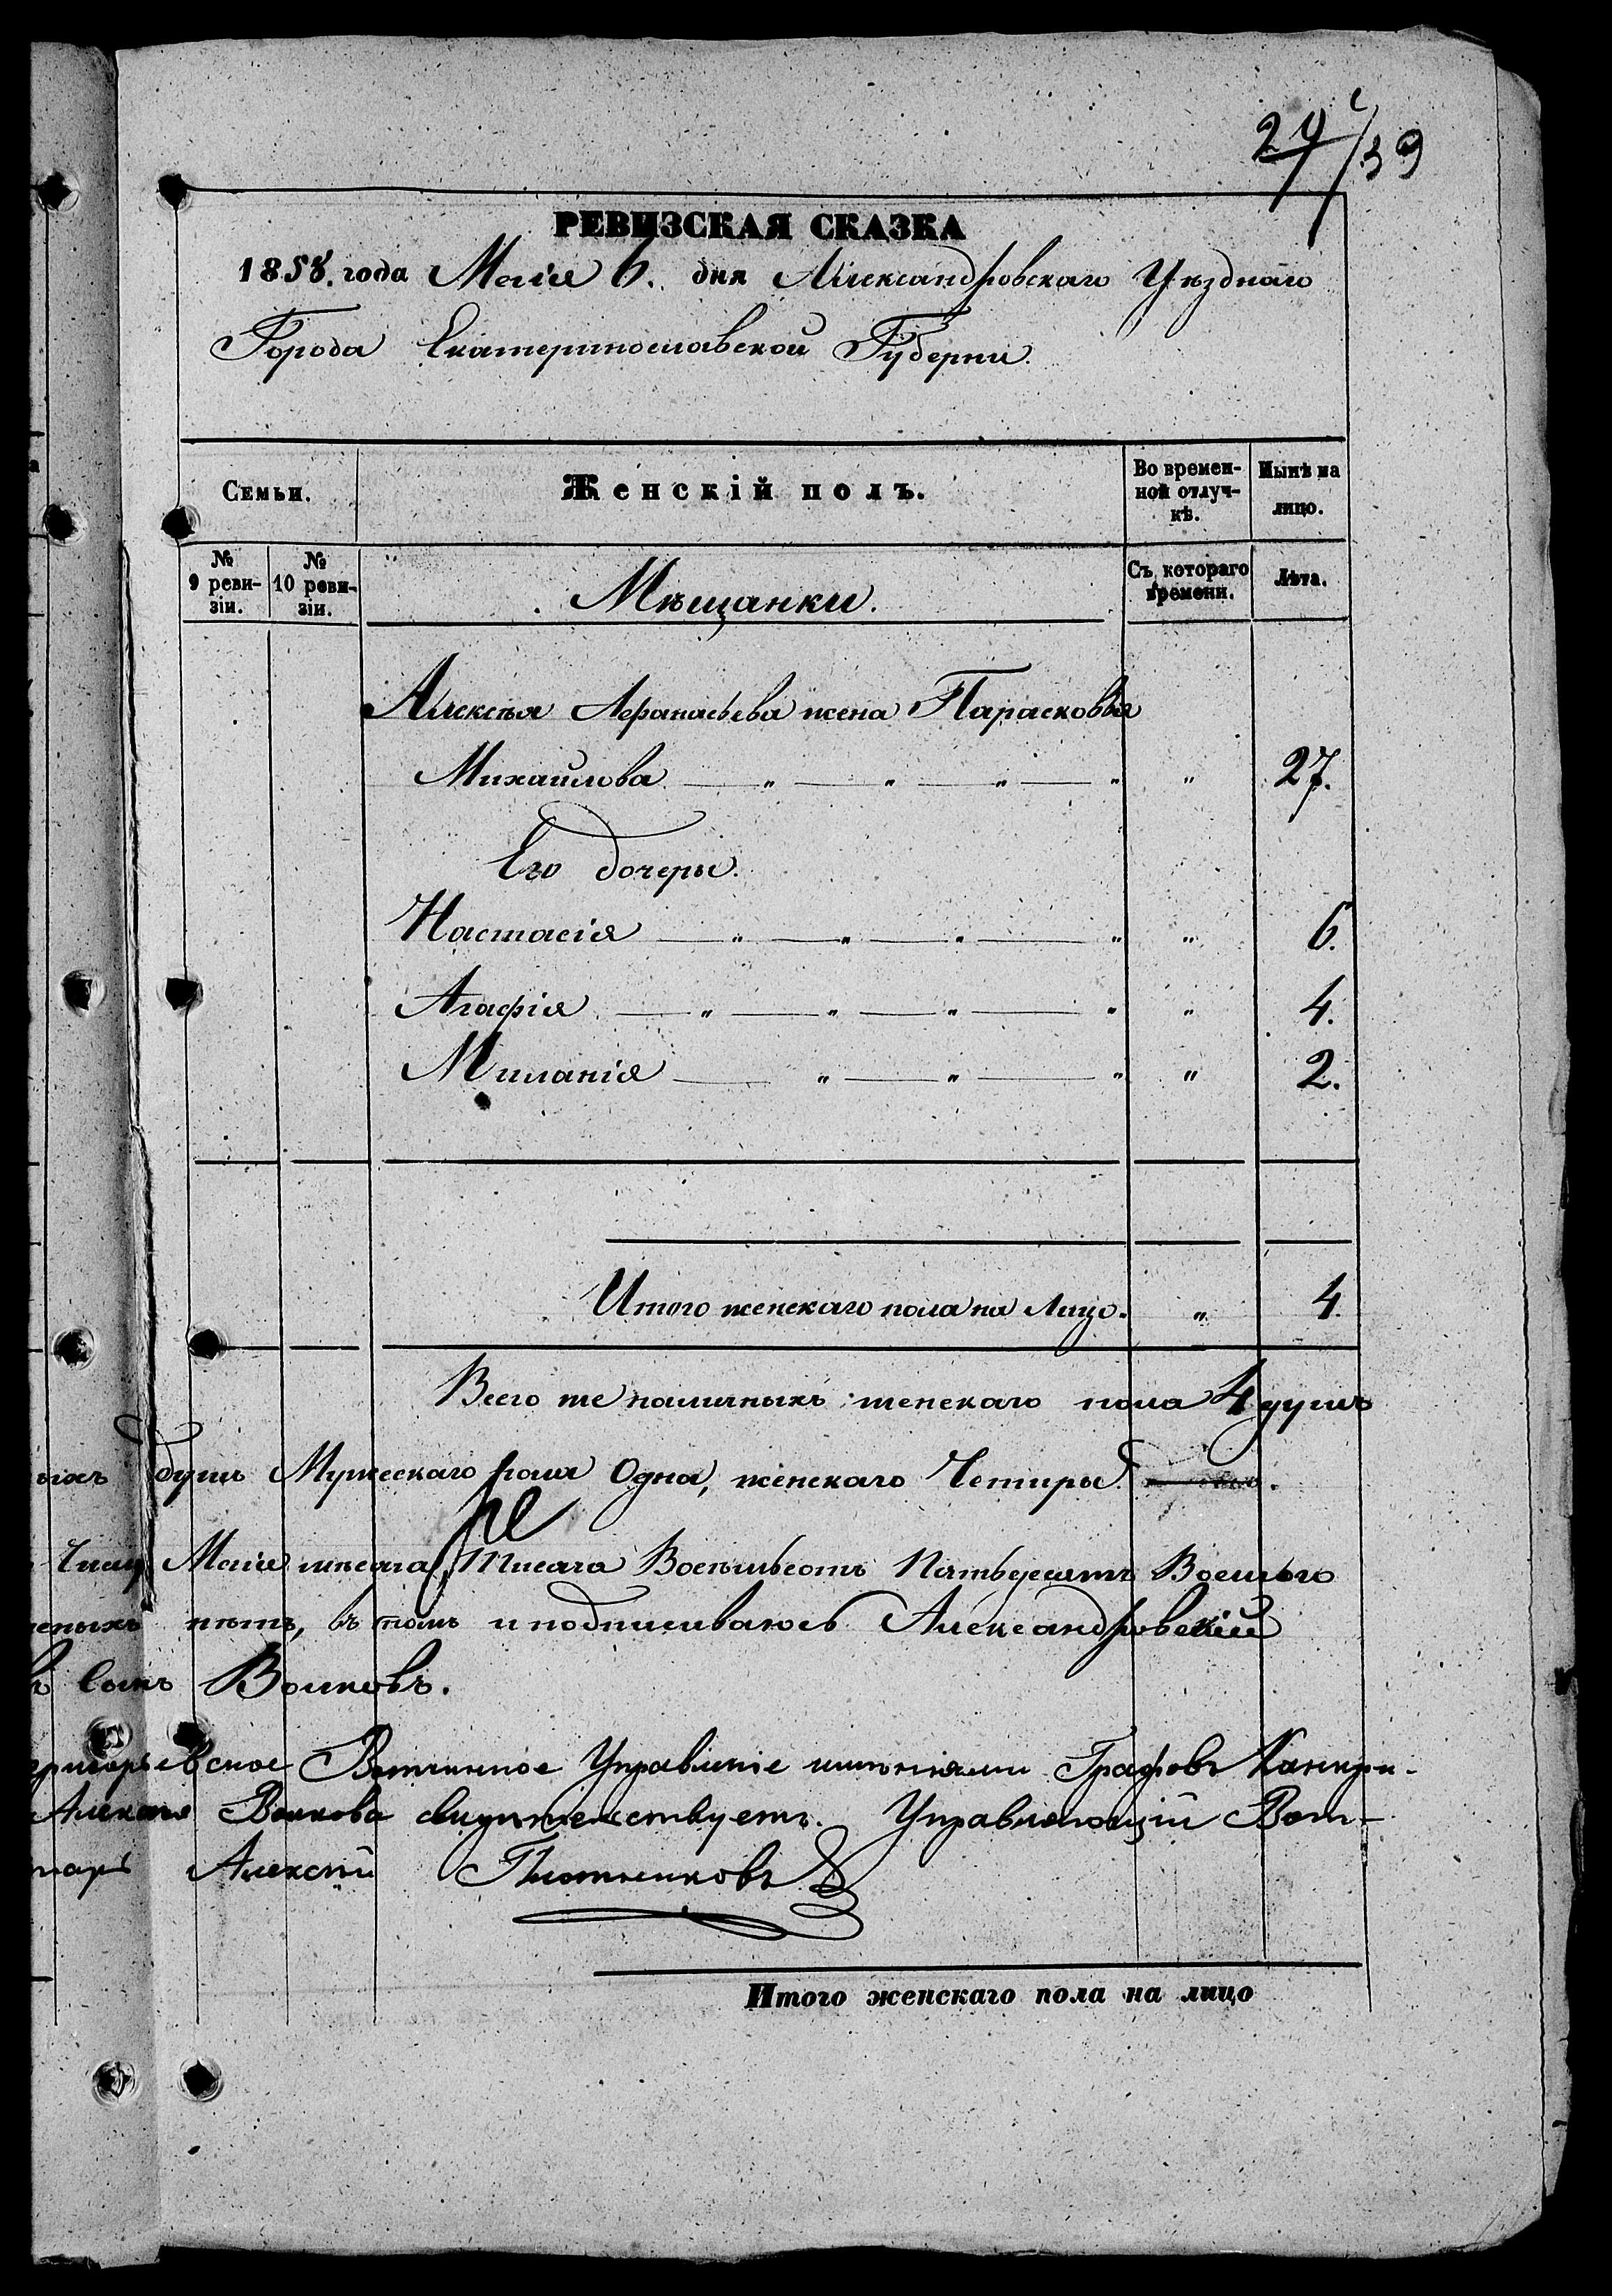 29/39
РЕВИЗСКАЯ СКАЗКА
1858. года Маія 6. дня Александровскаго Уѣзднаго
Города Екатеринославской Губерни.
Семьи.
Женскій полъ.
Во времен-
ной отлуч-
кѣ.
Нынѣ на
лицо.
№
9 реви-
зіи.
№
10 реви-
зіи.
Мѣщанки.
Съ котораго
времени.
Лѣта.
Алексѣя Афанасьева жена Парасковья
Михайлова — „ — „ — „ — „ „ 27.
Его дочери.
Настасія — „ — „ — „ — „ „ 6.
Агафія — „ — „ — „ — „ „ 4.
Миланія — „ — „ — „ „ 2.
Итого женскаго пола на Лицо. „ 4
Всего же наличныхъ женскаго пола 4 душъ
ныхъ душъ Мужескаго пола Одна, женскаго Четыры.
Маія мѣсяца Тисеча Восѣмьсотъ Пятьдесятъ Восьмого
неныхъ нѣтъ, въ томъ и подписиваюсь Александровскій
ъ Сынъ Волковъ.
григорьевское Вотчинное Управленіе имѣніями Графовъ Канкри-
Алексѣя Волкова свидѣтельствуетъ. Управляющій Вот-
тарь Алексѣй Плотниковъ
Итого женскаго пола на лицо